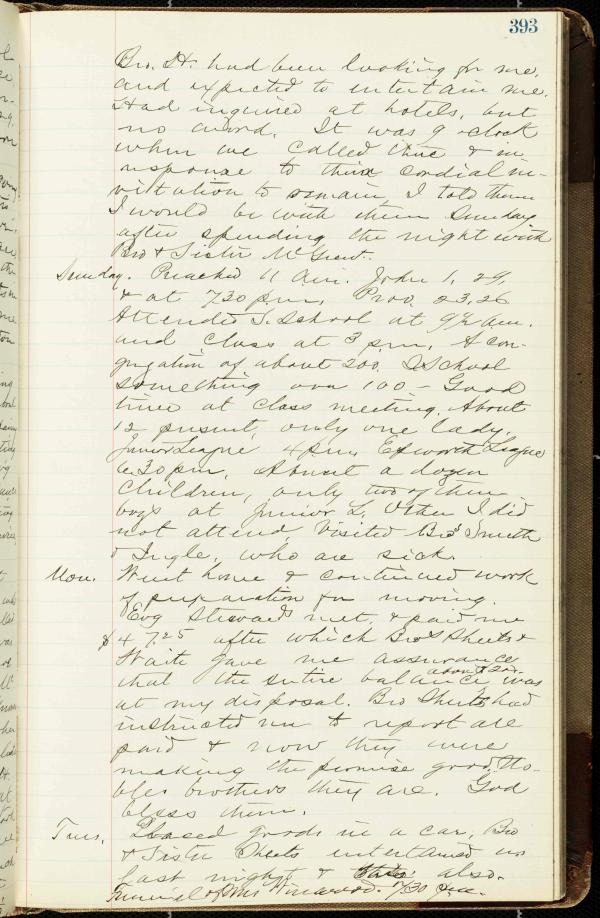 393
Bro. H. had been looking for me,
and expected to entertain me.
Had inquired at hotels, but
no avail. It was 9 o'clock
when we called there & in
response to their cordial in-
vitation to remain, I told them
I would be with them Sunday
after spending the night with
Bro & Sister McGrew.
Sunday. Preached 11 a.m. John 1, 29,
& at 7.30 p.m. Prov. 23.26
Attended S. School at 9½ a.m.
and class at 3 p.m. A con-
gregation of about 200. S School
something over 100 - Good
time at class meeting. About
12 present, only one lady.
Junior League 4 p.m. Epworth League
6.30 p.m. About a dozen
children, only two of them
boys at Junior L. Other I did
not attend. Visited Bros Smith
& Ingle, who are sick.
Mon. Went home & continued work
of preparation for moving.
Evg Stewards met, & paid me
$47.25 after which Bros Sheets &
Waite gave me assurance
that the entire balance about 20.. was
at my disposal. Bro Sheets had
instructed me to report all
paid & now they were
making the promise good. No-
bler brothers they are. God
bless them.
Tues. Loaded goods in a car, Bro
& Sister Sheets entertained us
last night & also.
Funeral of Mrs 7/30 p.m.